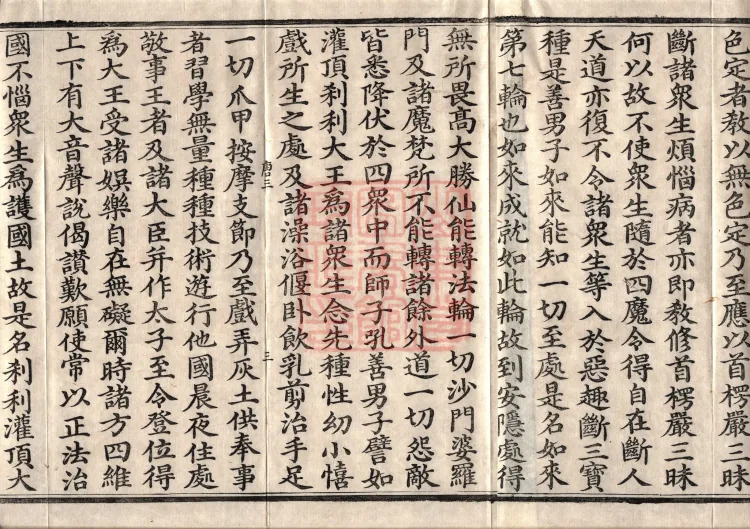 色定者教以無色定乃至應以首楞嚴三昧
斷諸衆生煩惱病者亦即教修首楞嚴三昧
何以故不使衆生隨於四魔令得自在斷人
天道亦復不令諸衆生等入於惡趣斷三寶
種是善男子如來能知一切至處是名如來
第七輪也如來成就如此輪故到安隱處得
無所畏髙大勝仙能轉法輪一切沙門婆羅
門及諸魔梵所不能轉諸餘外道一切怨敵
皆悉降伏於四衆中而師子乳善男子譬如
灌頂刹利大王爲諸衆生念先種性幼小憘
戲所生之處及諸澡浴偃卧飲乳剪治手足
唐三
三
一切爪甲按摩支節乃至戲弄灰土供奉事
者習學無量種種技術遊行他國晨夜住處
敬事王者及諸大臣并作太子至令登位得
爲大王受諸娯樂自在無礙爾時諸方四維
上下有大音聲說偈讃歎願使常以正法治
國不惱衆生爲護國土故是名刹利灌頂大